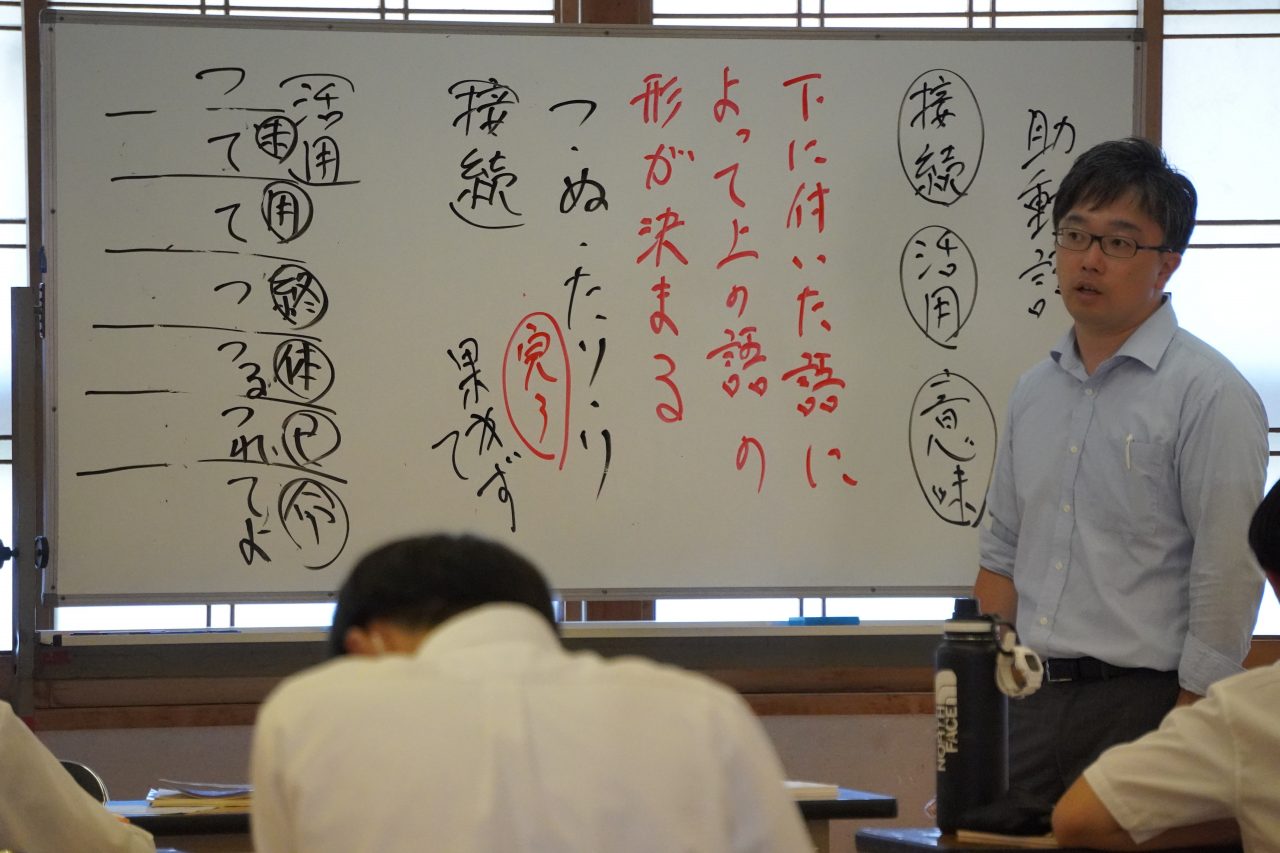 助動詞
接続 活用 意味
下に付いた語に
よって上の語の
形が決まる
つ・ぬ・たり・り
完了
接続
活用
未 用 終 体 已 命
つ て て つ つる つれ てよ
NORTH
FACE